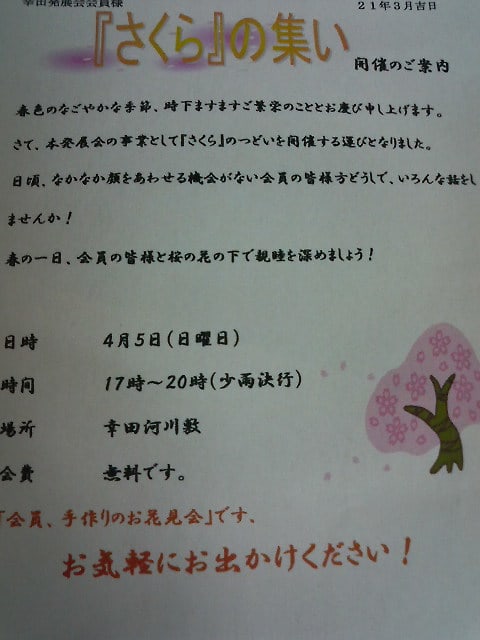 幸田発展会会員様
21年3月吉日
『さくら』の集い
開催のご案内
春色のなごやかな季節、時下ますますご繁栄のこととお慶び申し上げます。
さて、本発展会の事業として『さくら』のつどいを開催する運びとなりました。
日頃、なかなか顔をあわせる機会がない会員の皆様方どうしで、いろんな話をし
ませんか！
春の一日、会員の皆様と桜の花の下で親睦を深めましょう！
日時 4月5日(日曜日)
時間 17時～20時(少雨決行)
場所 幸田河川敷
会費 無料です。
「会員、手作りのお花見会」です、
お気軽にお出かけください！